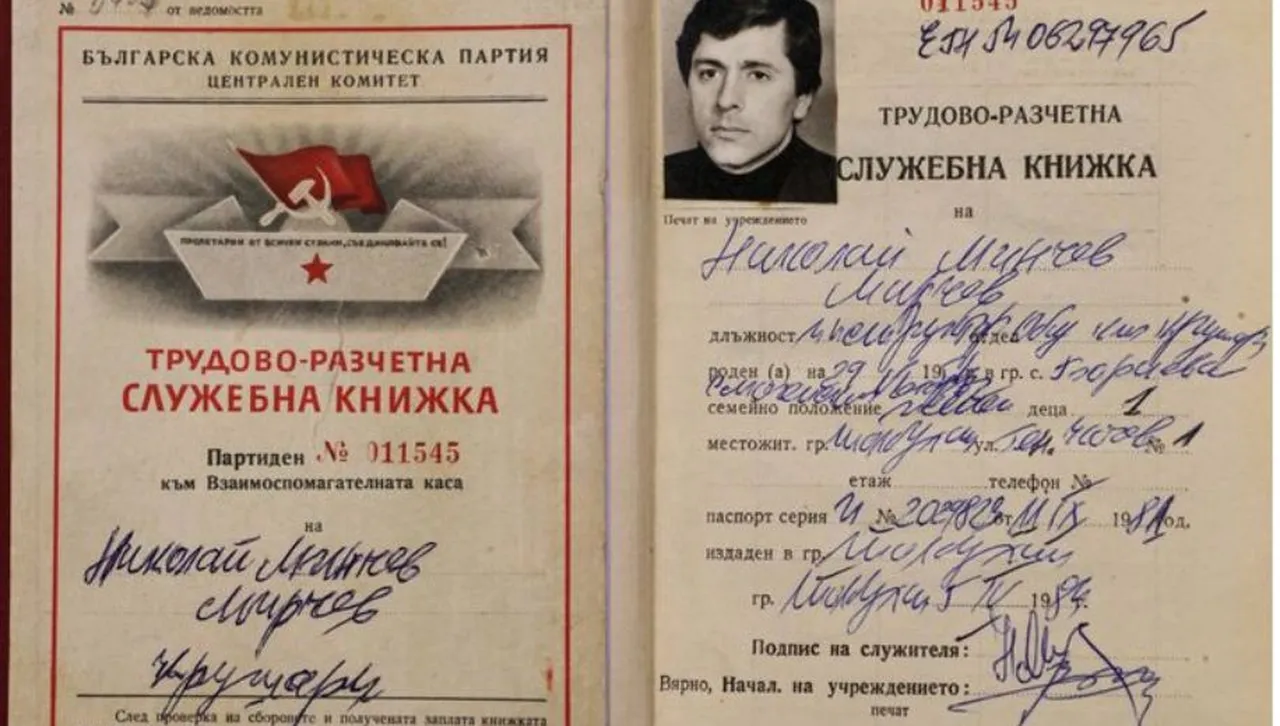 № от ведомостта
БЪЛГАРСКА КОМУНИСТИЧЕСКА ПАРТИЯ
ЦЕНТРАЛЕН КОМИТЕТ
ПРОЛЕТАРИИ ОТ ВСИЧКИ СТРАНИ, СЪЕДИНЯВАЙТЕ СЕ!
ТРУДОВО-РАЗЧЕТНА
СЛУЖЕБНА КНИЖКА
Партиден № 011545
към Взаимоспомагателната каса
на
Николай Минчев
Мирчев
Крушари
След проверка на сборовете и получената заплата книжката
011545
ЕГН 5406297965
ТРУДОВО-РАЗЧЕТНА
СЛУЖЕБНА КНИЖКА
Печат на учреждението
на
Николай Минчев
Мирчев
длъжност отдел
роден (а) на 29 19 в гр. с.
семейно положение женен деца 1
местожит. гр. Толбухин ул. Ген. № 1
етаж телефон №
паспорт серия И № от 11 IX 1981 год.
издаден в гр. Толбухин
гр. Толбухин 5 IV 1984 г.
Подпис на служителя:
Вярно, Начал. на учреждението:
печат